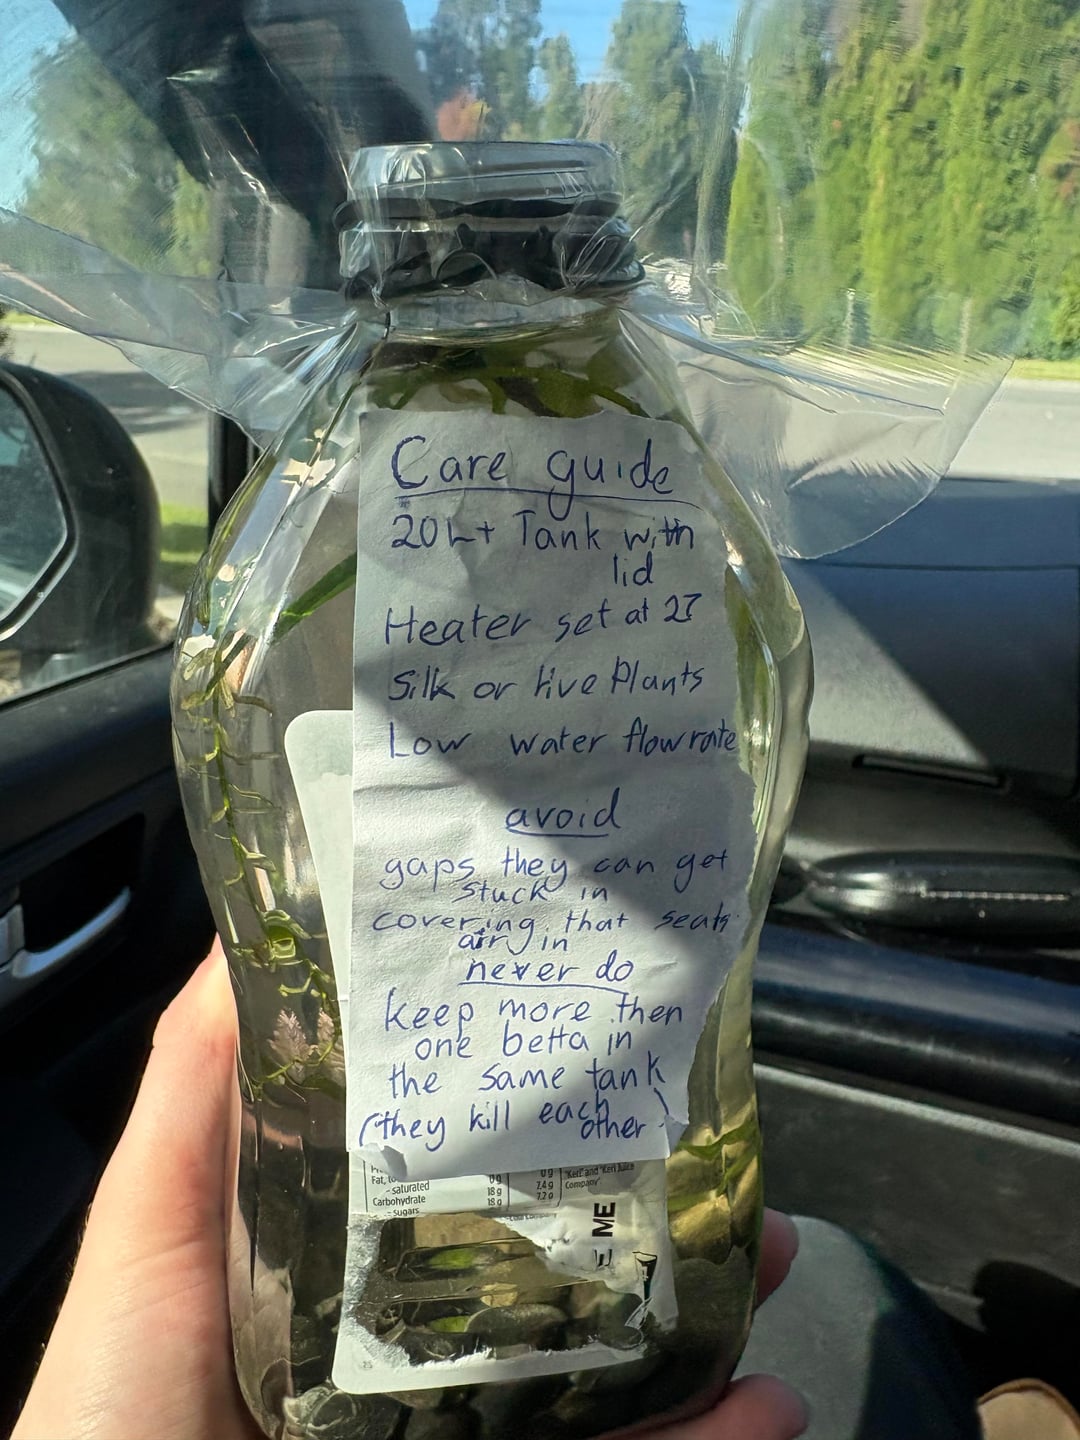 Care guide
20L+ Tank with
lid
Heater set at 27
Silk or live Plants
Low water flowrate
avoid
gaps they can get
stuck in
covering that seals
air in
never do
keep more then
one betta in
the same tank
(they kill each
other)
Fat, to 0g 0g
- saturated 0g 7.4g
Carbohydrate 18g 7.2g
- sugars 18g
'Keri' and 'Keri Juice
Company'
ME